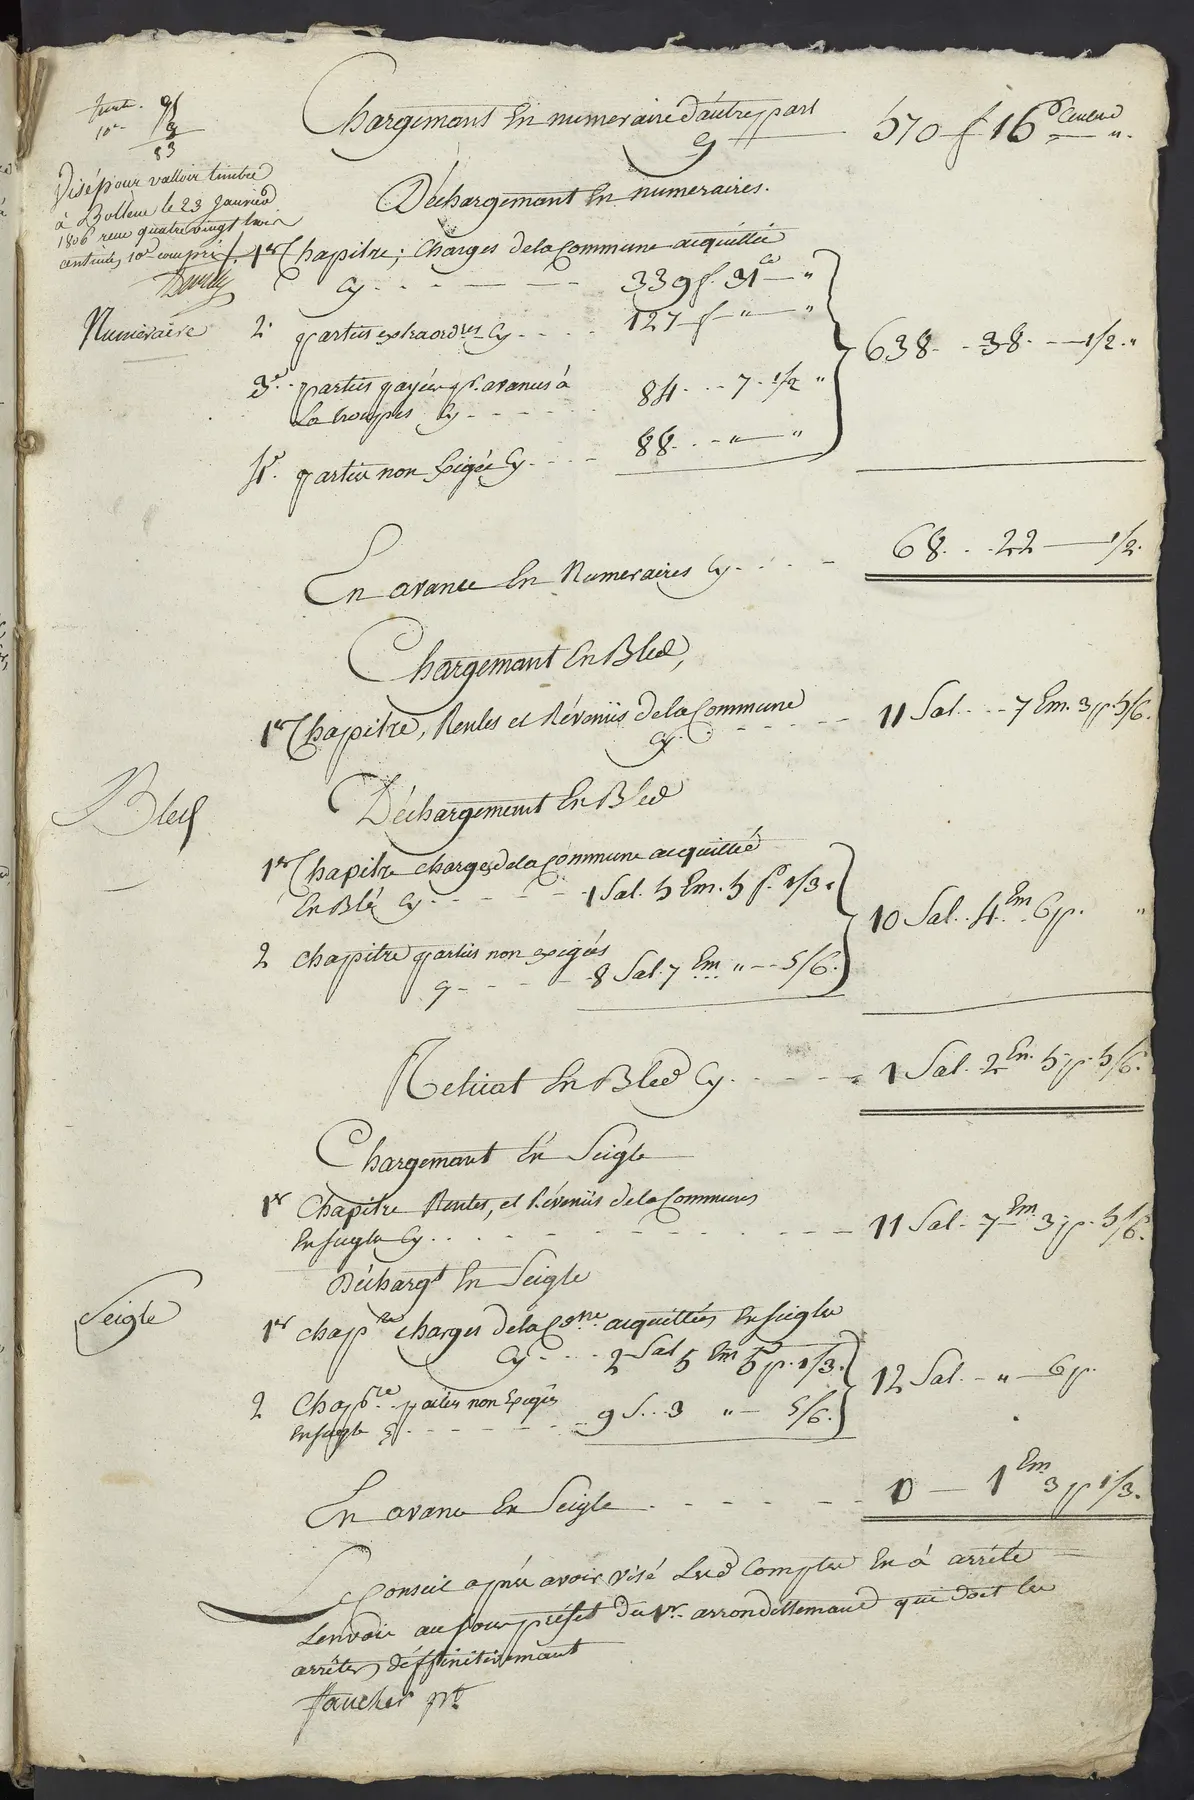 Chargemant En numeraire d'autre part
Cy 570 f 16 Cent
Déchargemant En numeraires.
Visé pour valloir timbre
à Bollene le 23 Janvier
1806 reçu quatre vingt trois
centimes 10e compris
Numéraire
1er Chapitre; Charges de la Commune acquittée
Cy 339 f. 31 ce "
2. parties extraordres Cy 127 f " "
638. 38. 1/2. "
3e. parties payées pr. avances à
La troupes Cy 84 7. 1/2 "
4e. parties non Exigée Cy 88. " "
En avance En Numeraires Cy 68. 22 1/2.
Chargemant En Bled,
1er Chapitre, Rentes et Révenüs de la Commune
Cy 11 Sal. 7 Em. 3 p. 5/6.
Bled
Déchargemant En Bled
1er Chapitre charges de la Commune acquittée
En Blé Cy 1 Sal. 5 Em. 5 p. 1/3.
10 Sal. 4 Em 6 p. "
2 chapitre parties non exigées
Cy 8 Sal. 7 Em " 5/6.
Reliicat En Bled Cy 1 Sal. 2 Em. 5 p. 5/6.
Chargemant En Seigle
1er Chapitre Rentes, et Révenüs de la Communes
En seigle Cy 11 Sal. 7 Em 3 p. 5/6.
Décharget En Seigle
Seigle
1er chapre charges de la Comne. acquittées En seigle
Cy 2 Sal 5 Em 5 p. 1/3.
12 Sal. " 6 p.
2 Chapre. parties non Exigées
En seigle Cy 9 S. 3 " 5/6.
En avance En Seigle 0 1 Em 3 p 1/3.
Le Conseil après avoir visé Led Compte En à arrêté
Lenvoir au sous préfet du 1er arrondissemand qui doit le
arrêter déffinitivemant
Faucher prt